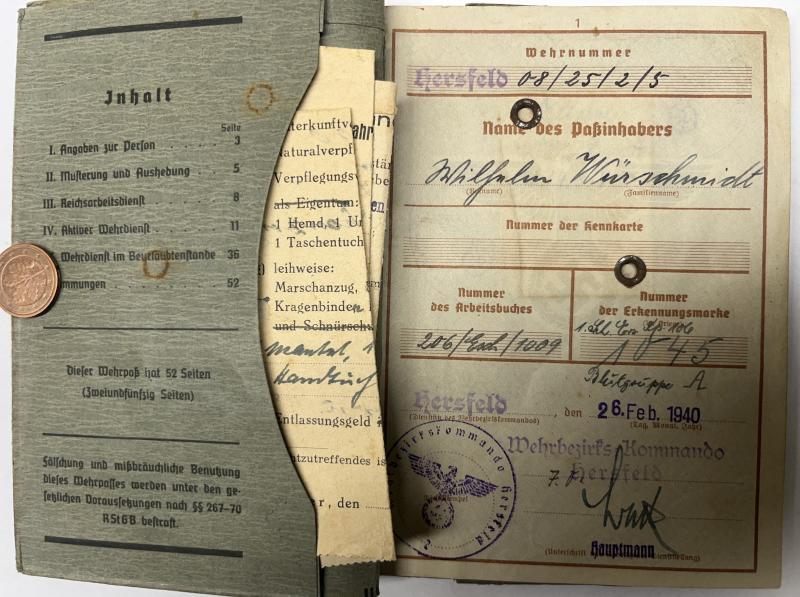 Inhalt
Seite
I. Angaben zur Person . . . . . 3
II. Musterung und Aushebung . . . 5
III. Reichsarbeitsdienst . . . . . 8
IV. Aktiver Wehrdienst . . . . . 11
Wehrdienst im Beurlaubtenstande 36
mmungen . . . . . 52
Dieser Wehrpaß hat 52 Seiten
(Zweiundfünfzig Seiten)
Fälschung und mißbräuchliche Benutzung
dieses Wehrpasses werden unter den ge-
setzlichen Voraussetzungen nach §§ 267-70
RStGB bestraft.
terkunftv
Naturalverpf
Verpflegungsv
als Eigentum:
1 Hemd, 1 Un
1 Taschentuch
leihweise:
Marschanzug,
Kragenbinden
und Schnürschu
Mantel, 1
Handtuch
Entlassungsgeld
tzutreffendes is
r, den
1
Wehrnummer
Hersfeld 08/25/2/5
Name des Paßinhabers
Wilhelm Würschmidt
(Vorname) (Familienname)
Nummer der Kennkarte
Nummer
des Arbeitsbuches
206/Esch/1009
Nummer
der Erkennungsmarke
45
Blutgruppe A
Hersfeld, den 26. Feb. 1940
(Dienstsitz des Wehrbezirkskommandos) (Tag, Monat, Jahr)
Wehrbezirks-Kommando
Hersfeld
bezirkskommando Hersfeld
2
Hauptmann
(Unterschrift